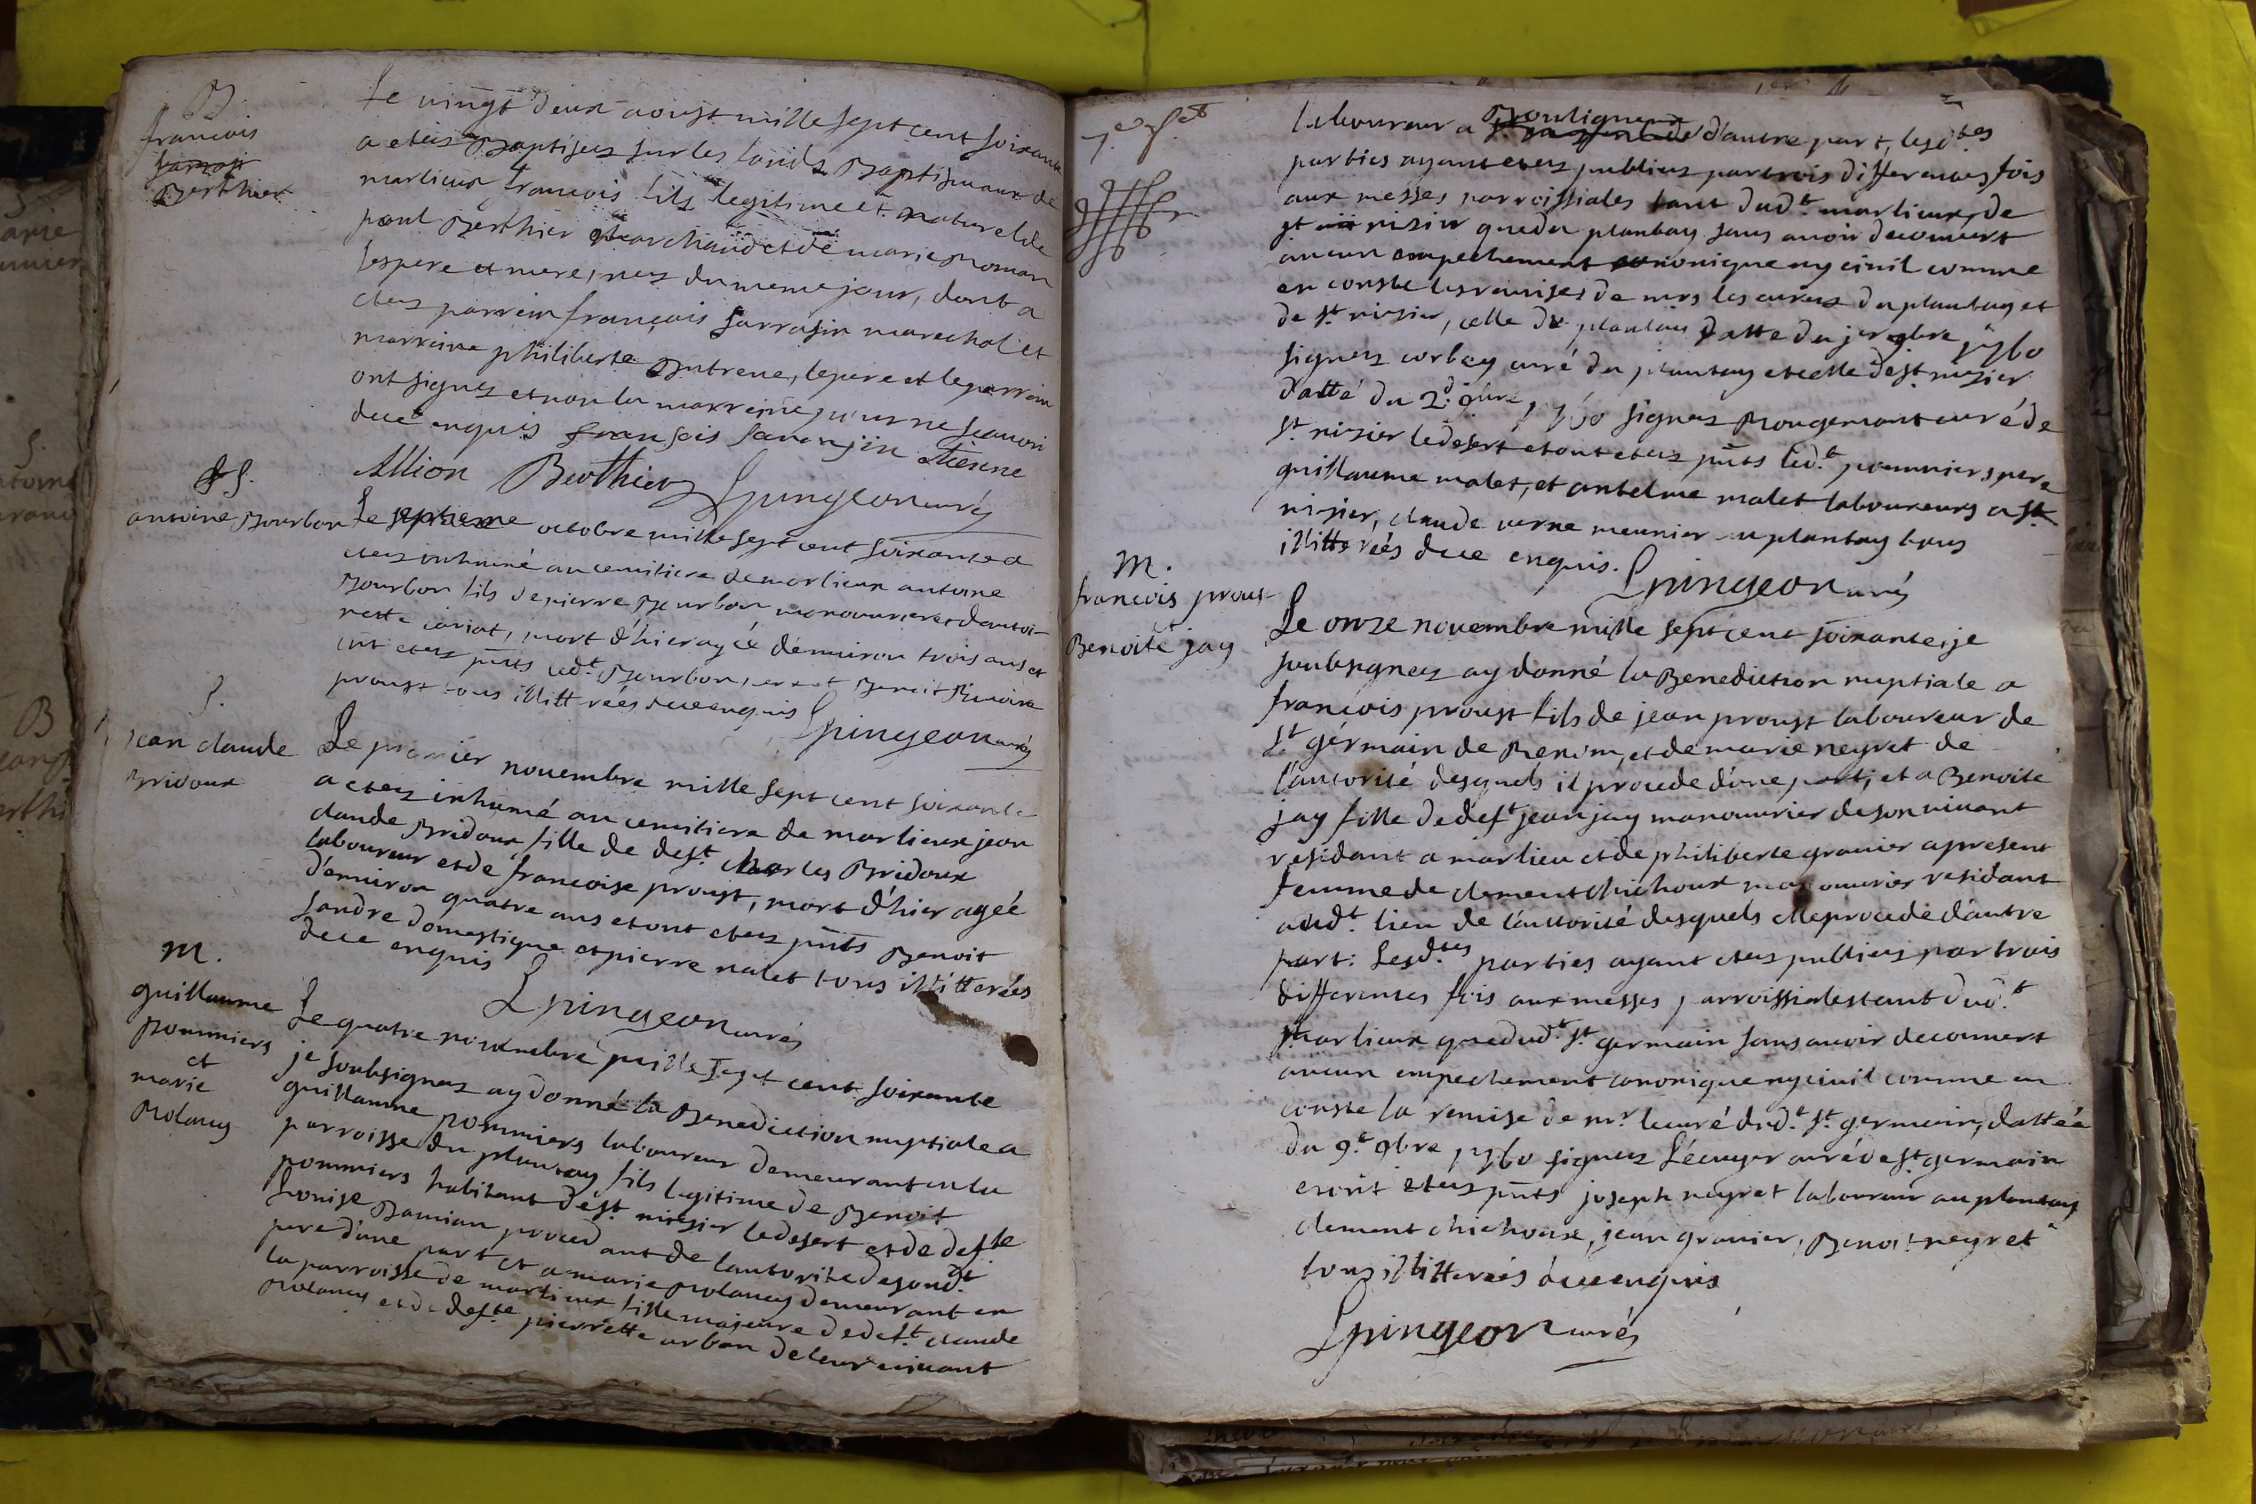 B.
francois
Berthier
Le vingt deux aoust mille sept cent soixante
a etez Baptisez sur les fonds Baptismaux de
marlieux francois fils legitime et naturel de
paul Berthier marchand et de marie Roman
ses pere et mere, nez du meme jour, dont a
etez parrein françois sarrasin marechal et
marreine philiberte Butrene, le pere et le parrein
ont signez et non la marreine pour ne scavoir
duee enquis françois sarrasin etienne
Allion Berthier Epingeon curés
S.
antoine Bourbon
Le septieme octobre mille sept cent soixante a
etez inhumé au cemitiere de marlieux antoine
Bourbon fils de pierre Bourbon manouvrier et d'antoi-
nette cariat, mort d'hier agéé d'environ trois ans et
ont etez pnts led.t Bourbon, et Benoit
proust tous illitterées duee enquis Epingeon curés
S.
jean claude
Bridoux
Le premier novembre mille sept cent soixante
a etez inhumé au cemitiere de marlieux jean
claude Bridoux fille de def.t charles Bridoux
laboureur et de francoise proust, mort d'hier agéé
d'environ quatre ans et ont etez pnts Benoit
sandre domestique et pierre nalet tous illitterées
duee enquis Epingeon curés
m.
guillaume
pommiers
et
marie
Rolancy
Le quatre novembre mille sept cent soixante
je soubsignez ay donné la Benediction nuptiale a
guillaume pommiers laboureur demeurant en la
parroisse du plantay fils legitime de Benoit
pommiers habitant de st. nizier le desert et de defte
Louise Damian procedant de l'autorité de sond.t
pere d'une part et a marie Rolancy demeurant en
la parroisse de marlieux fille majeure de def.t claude
Rolancy et de defte. pierrette urban de leur vivant
7.e f.et
laboureur a Bouligneux d'autre part, lesd.tes
parties ayant etez publiez par trois differentes fois
aux messes parroissiales tant dud.t marlieux, de
st nizier que du plantay sans avoir decouvert
aucun empechement canonique ny civil comme
en conste les remises de mrs les curez du plantay et
de st. nizier, celle du plantay datte du jer 9bre 1760
signez corbey curé du plantay et celle de st. nizier
datté du 2.d 9bre, 1760 signez Rougemont curé de
st. nizier le desert et ont etez pnts led.t pommiers pere
guillaume malet, et antelme malet laboureurs a st
nizier, claude verne meunier au plantay tous
illitterées duee enquis. Epingeon curés
m.
francois proust
et
Benoite jay
Le onze novembre mille sept cent soixante, je
soubsignez ay donné la Benediction nuptiale a
francois proust fils de jean proust laboureur de
st. germain de Renom, et de marie neyret de
l'autorité desquels il procede d'une part, et a Benoite
jay fille de def.t jean jay manouvrier de son vivant
residant a marlieu et de philiberte granier a present
femme de clement chichoux manouvrier residant
aud.t lieu de l'auttorité desquels elle procede d'autre
part: Lesd.tes parties ayant etez publiez par trois
differentes fois aux messes parroissiales tant dud.t
marlieux que dud.t st. germain sans avoir decouvert
aucun empechement canonique ny civil comme en
conste la remise de mr. le curé dud.t st. germain, dattéé
du 9.e 9bre 1760 signez Lécuyer curé de st. germain
et ont etez pnts joseph neyret laboureur au plantay
clement chichoux, jean granier, Benoit neyret
tous illitterées duee enquis
Epingeon curés